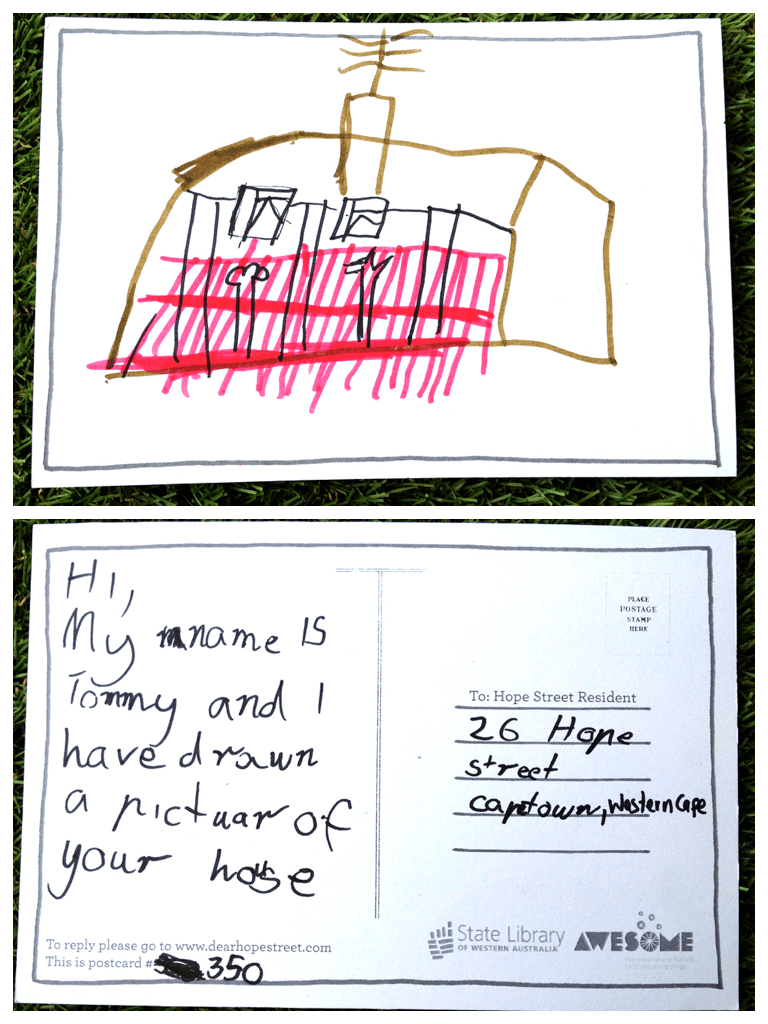 Hi,
My name is
Tommy and I
have drawn
a pictuar of
your house
To reply please go to www.dearhopestreet.com
This is postcard # 350
PLACE
POSTAGE
STAMP
HERE
To: Hope Street Resident
26 Hope
street
capetown, Western Cape
State Library
OF WESTERN AUSTRALIA
AWESOME